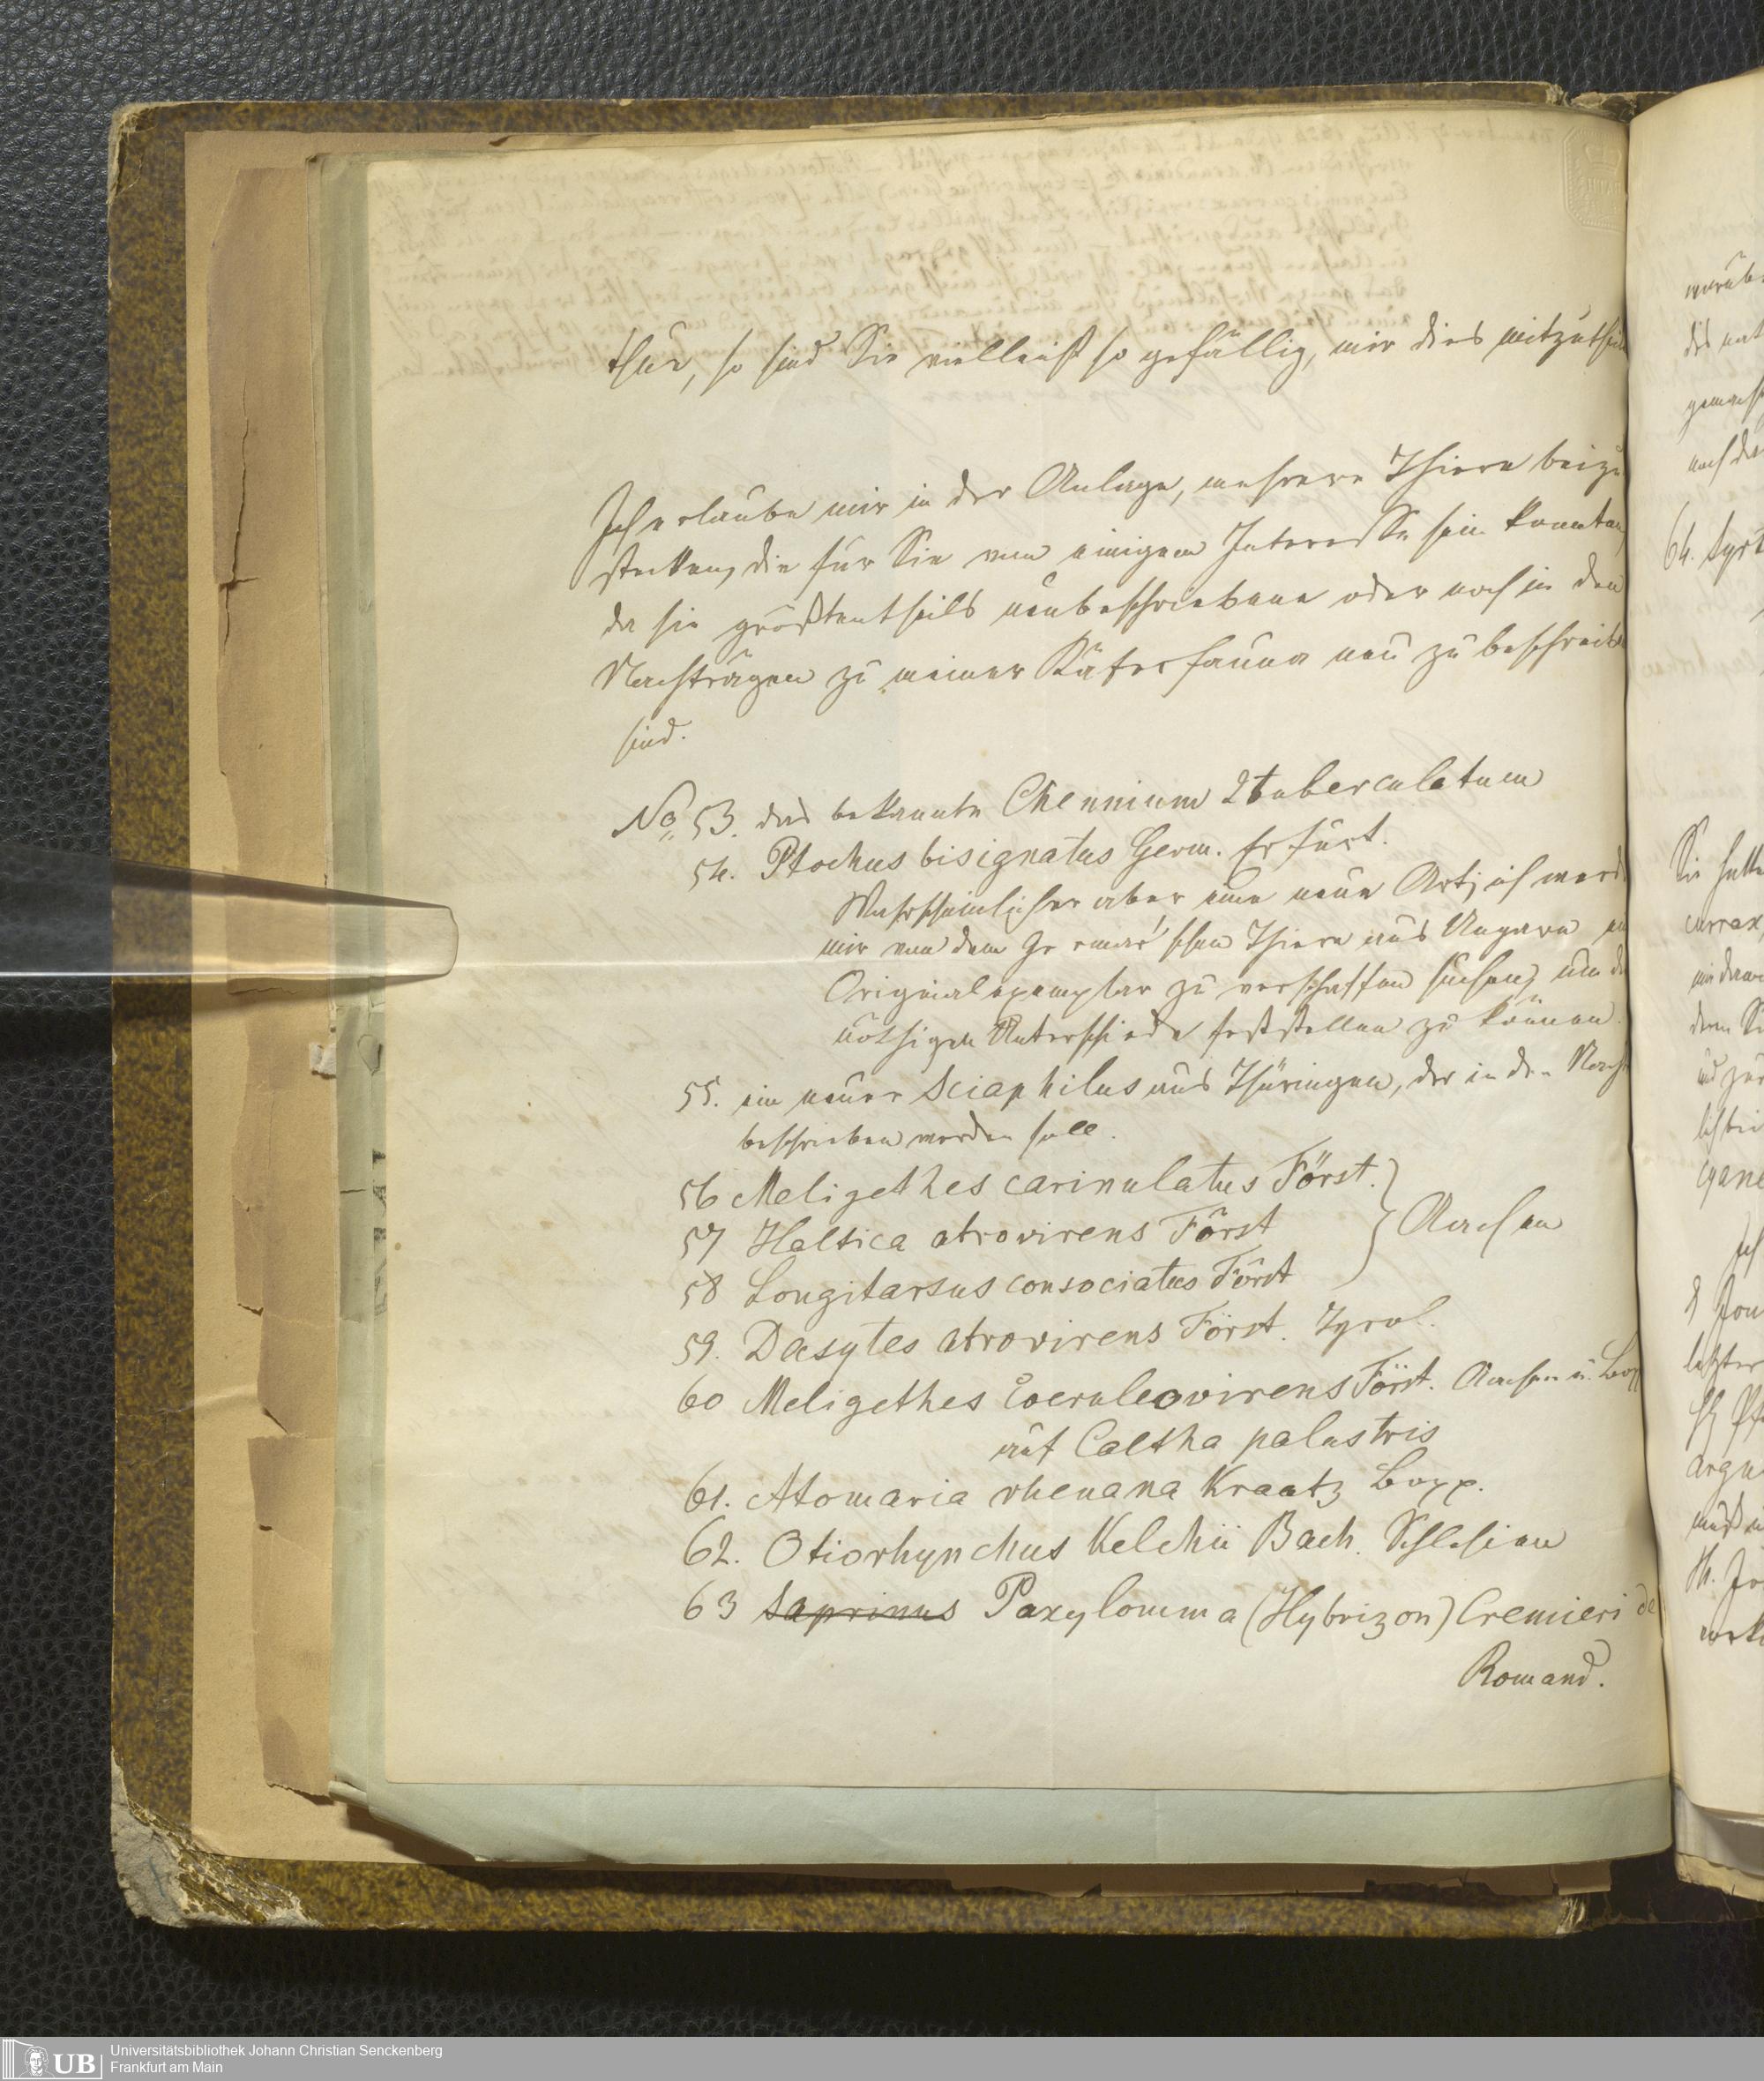 thun, so sind Sie vielleicht so gefällig, mir dies mitzuthei
Ich erlaube mir in der Anlage, mehrere Thiere beizu
stecken, die für Sie von einigem Interesse sein konnten,
da sie größtentheils neubeschriebene oder noch in den
Nachträgen zu meiner Käferfauna neu zu beschreiben
sind.
No 53. das bekannte Chennium 2tuberculatum
54. Ptochus bisignatus Germ. Erfurt.
Wahrscheinlicher aber eine neue Art; ich werd
mir von dem Germar'schen Thiere aus Ungarn ein
Originalexemplar zu verschaffen suchen, um die
nöthigen Unterschiede feststellen zu können.
55. ein neuer Sciaphilus aus Thüringen, der in den Nach
beschrieben werden soll.
56 Meligethes carinulatus Först.
57 Haltica atrovirens Först } Aachen
58 Longitarsus consociatus Först
59. Dasytes atrovirens Först. Tyrol.
60 Meligethes coeruleovirens Först. Aachen u. Bopp
auf Caltha palustris
61. Atomaria rhenana Kraatz Bopp.
62. Otiorhynchus Kelchii Bach. Schlesien
63 Saprinus Paxylomma (Hybrizon) Cremieri de
Romand.
64. Syrt
Sie hatte
currax
cyane
Ich
letzter
argu
Universitätsbibliothek Johann Christian Senckenberg
Frankfurt am Main
UB